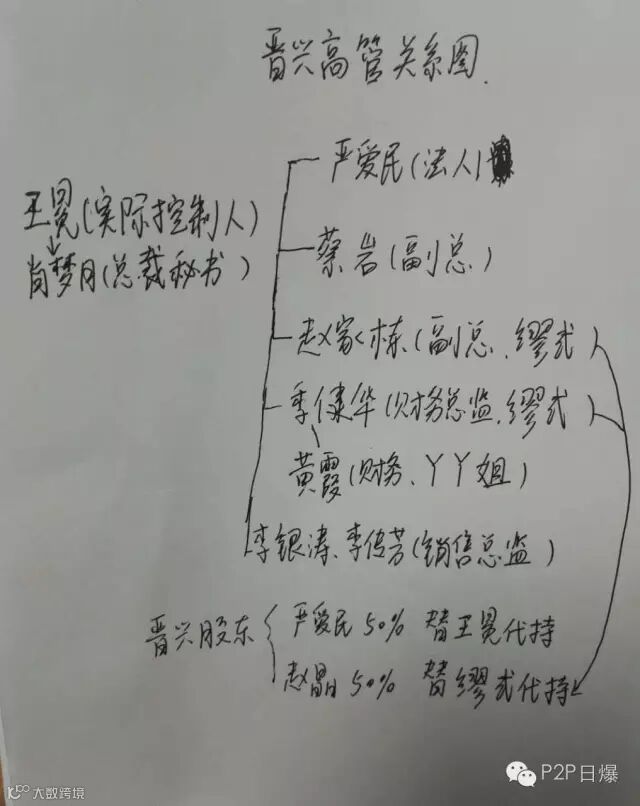 晋兴高管关系图
严爱民(法人)
王冕(实际控制人)
肖梦月(总裁秘书)
蔡岩(副总)
赵家栋(副总、缪式)
季健华(财务总监、缪式)
黄霞(财务、丫丫姐)
李银涛、李传芳(销售总监)
晋兴股东
严爱民 50% 替王冕代持
赵晶 50% 替缪式代持
P2P日爆
大数跨境